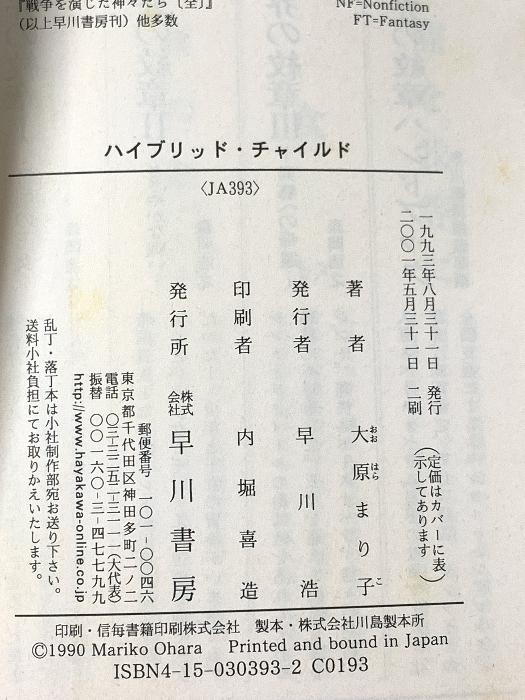 『戦争を演じた神々たち〔全〕』
(以上早川書房刊)他多数
NF=Nonfiction
FT=Fantasy
ハイブリッド・チャイルド
〈JA393〉
一九九三年八月三十一日 発行
二〇〇一年五月三十一日 二刷
(定価はカバーに表示してあります)
著者 大原まり子
おお はら こ
発行者 早川浩
印刷者 内堀喜造
発行所 株式会社 早川書房
郵便番号 一〇一-〇〇四六
東京都千代田区神田多町二ノ二
電話 〇三-三二五二-三一一一(大代表)
振替 〇〇一六〇-三-四七七九九
http://www.hayakawa-online.co.jp
乱丁・落丁本は小社制作部宛お送り下さい。
送料小社負担にてお取りかえいたします。
印刷・信毎書籍印刷株式会社 製本・株式会社川島製本所
©1990 Mariko Ohara Printed and bound in Japan
ISBN4-15-030393-2 C0193